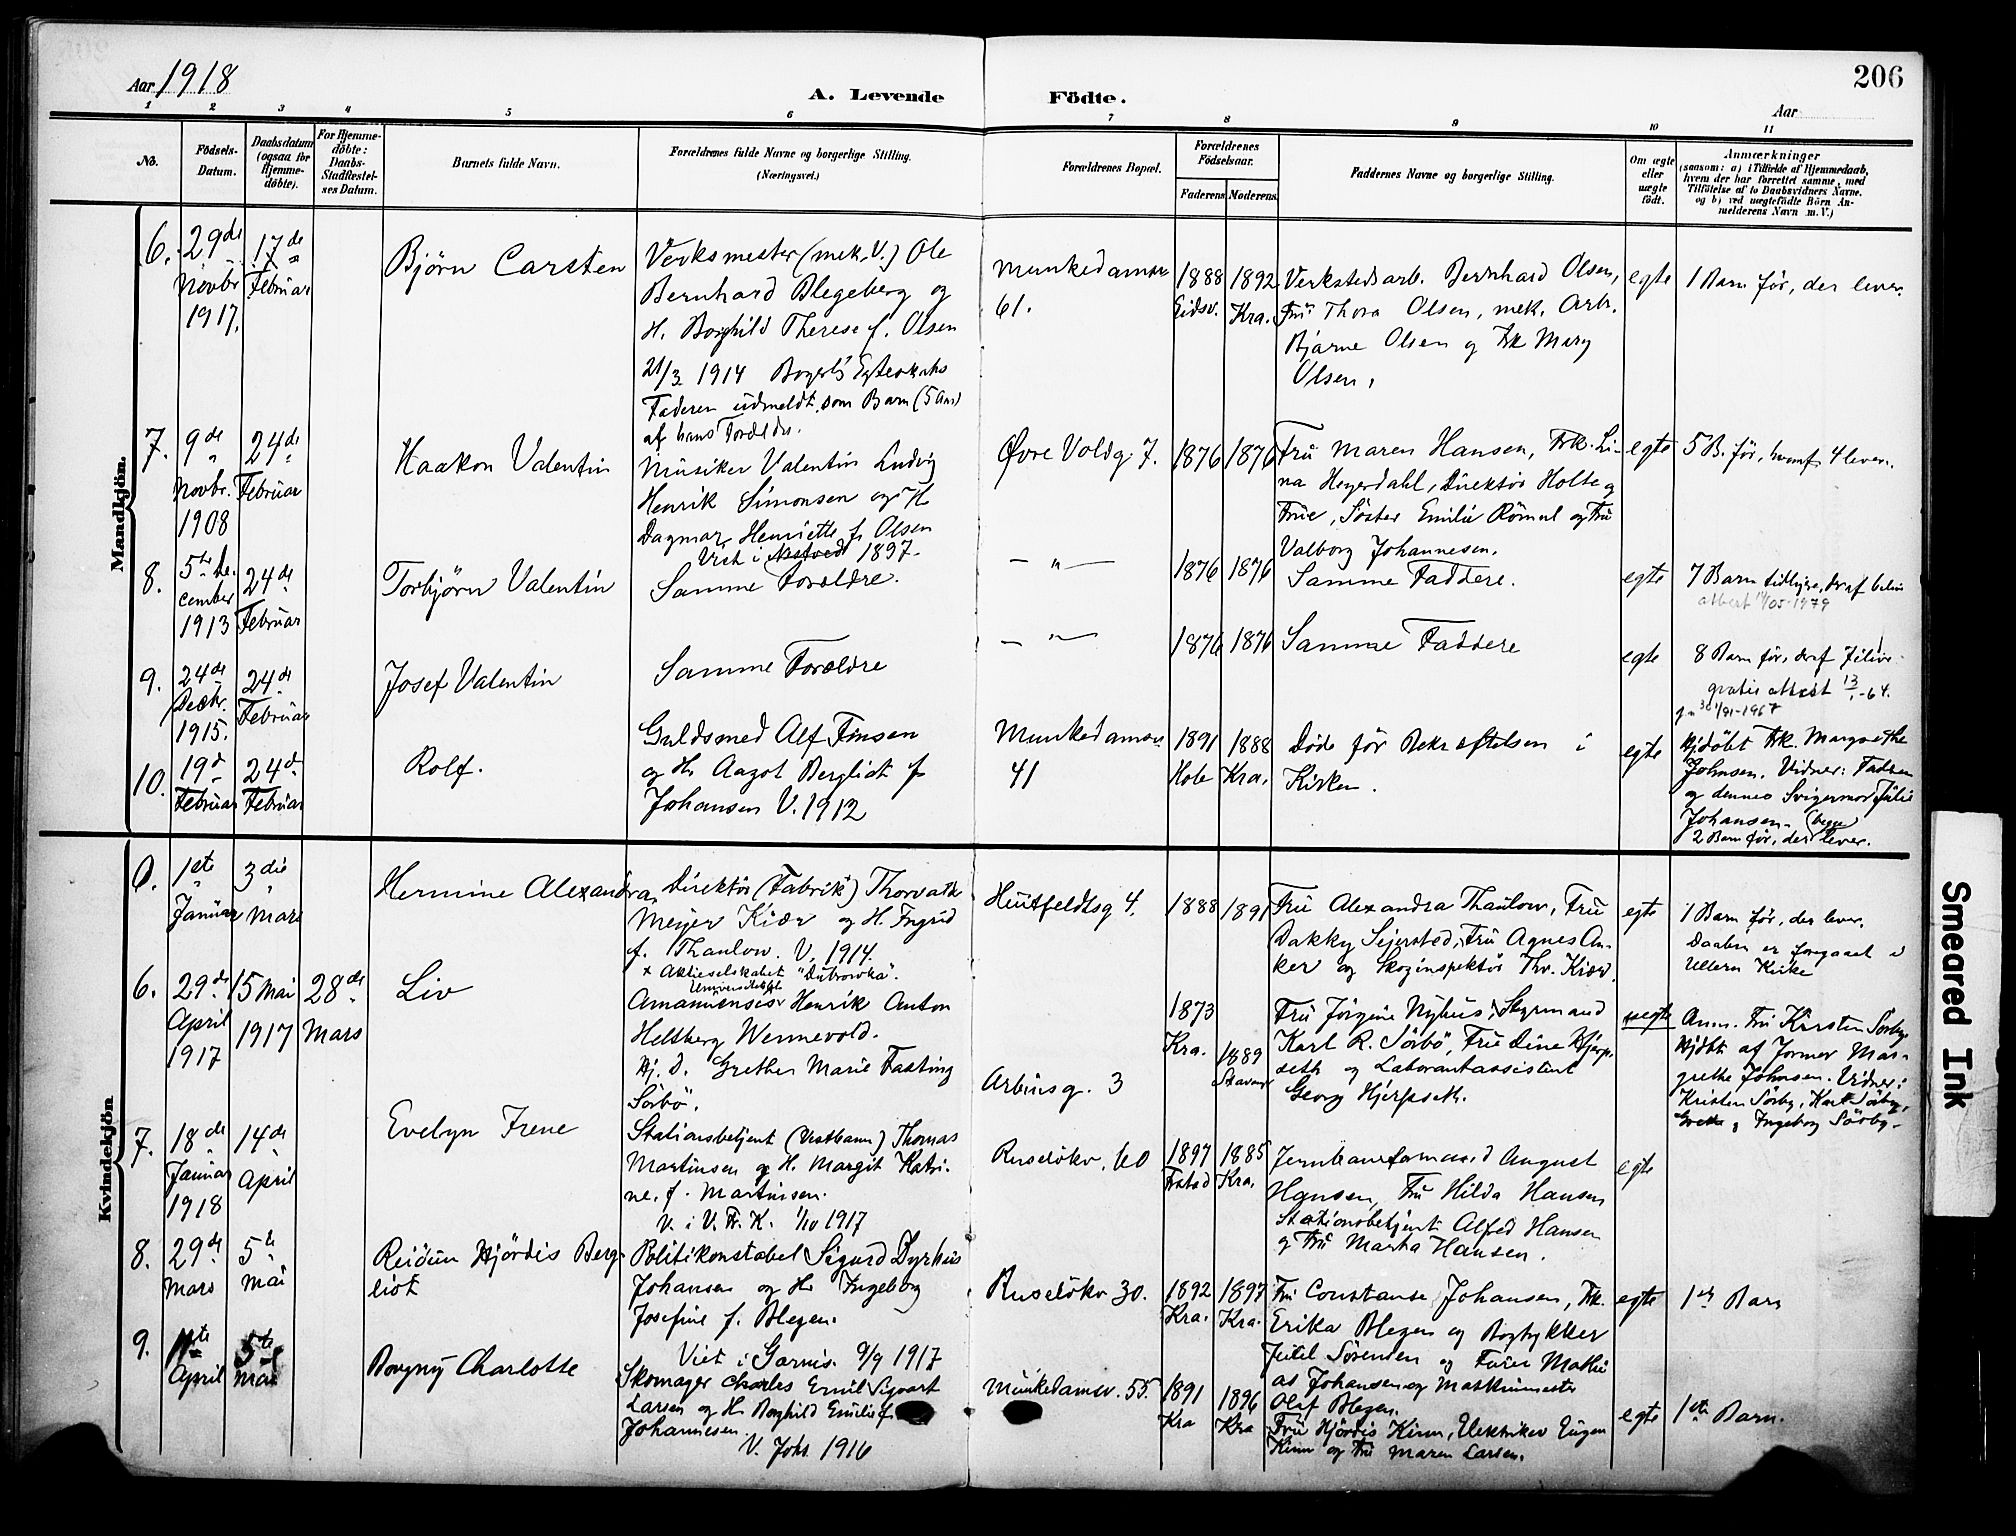 206
Aar 1918
A. Levende Födte.
Aar
1 2 3 4 5 6 7 8 9 10 11
No.
Födsels-
Datum.
Daabsdatum
(ogsaa for
Hjemme-
döbte).
For Hjemme-
döbte:
Daabs-
Stadfæstel-
ses Datum.
Barnets fulde Navn.
Forældrenes fulde Navne og borgerlige Stilling.
(Næringsvei.)
Forældrenes Bopæl.
Forældrenes
Födselsaar.
Faderens
Moderens
Faddernes Navne og borgerlige Stilling.
Om ægte
eller
uægte
födt.
Anmærkninger
(saasom: a) i Tilfælde af Hjemmedaab,
hvem der har forrettet samme, med
Tilföielse af to Daabsvidners Navne.
og b) ved uægtefödte Börn An-
melderens Navn m. V.)
Mandkjön.
6.
29de
Novbr
1917.
17de
Februar
Bjørn Carsten
Verksmester (mek. V.) Ole
Bernhard Blegeberg og
H. Borghild Therese f. Olsen
21/3 1914 Borgerl. Egteskab
Faderen udmeldt som Barn (5 Aar)
af hans Foreldre.
Munkedamsv
61.
1888
Eidsv.
1892
Kra.
Verkstedsarb. Bernhard Olsen,
Fru Thora Olsen, mek. Arb.
Bjarne Olsen og Frk Mary
Olsen,
egte
1 Barn før, der lever.
7.
9de
Novbr.
1908
24de
Februar
Haakon Valentin
Musiker Valentin Ludvig
Henrik Simonsen og H
Dagmar Henriette f. Olsen
Viet i Næstved 1897.
Øvre Voldg. 7.
1876
1876
Fru Maren Hansen, Frk. Li-
na Heyerdahl, Direktør Holte og
Frue, Søster Emilie Römul og Fru
Valborg Johannesen.
egte
5 B. før, hvoraf 4 lever.
8.
5te De.
cember
1913
24de
Februar
Torbjørn Valentin
Samme Foreldre.
— " —
1876
1876
Samme Faddere.
egte
7 Barn tidligere, draf 6 live
attest 14/05-1979
9.
24de
Decbr.
1915.
24de
Februar
Josef Valentin
Samme Foreldre
— " —
1876
1876
Samme Faddere
egte
8 Barn før, draf 7 live
gratis attest 13/1-64.
10.
19d
Februar
24d
Februar
Rolf.
Guldsmed Alf Finsen
og H. Aagot Bergliot f
Johansen V. 1912
Munkedamsv.
41
1891
Hole
1888
Kra.
Døde før Bekræftelsen i
Kirken.
egte
Hjdöbt Frk. Margrethe
Johnsen. Vidner: Fadren
og dennes Svigermor Julie
Johansen. (begge)
2 Barn før, der lever.
Kvindekjön
0.
1ste
Januar
3die
Mars
Hermine Alexandra,
Direktör (Fabrik) Thorvald
Meyer Kiær og H. Ingrid
f. Thaulow. V. 1914.
x Aktieselskabet "Dubrowka".
Huitfeldtsg 4.
1888
1891
Fru Alexandra Thaulow, Fru
Dakky Sejersted, Fru Agnes An-
ker og Skoginspektör Thv. Kiær.
egte
1 Barn før, der lever.
Daaben er foregaaet i
Ullern Kirke
6.
29de
April
1917
15 Mai
1917
28de
Mars
Liv
Amanuensis Henrik Anton
Helsberg Wennevold.
Hj. D. Grethe Marie Fasting
Sörbö.
Arbinsg. 3
1873
Kra.
1889
Stavanger
Fru Jörgine Nyhus, Styrmand
Karl R. Sörbö, Frue Dina Hjerp-
seth og Laborantassistent
Georg Hjerpseth.
uegte
Anm. Fru Kirsten Sörby.
Hjdbt af Jormor Mar-
grethe Johnsen. Vidner:
Kristen Sörby, Karl Sörby,
Grethe og Ingeborg Sörby.
7.
18de
Januar
1918
14de
April
Evelyn Irene
Stationsbetjent (Vestbann) Thomas
Martinsen og H. Margit Katri-
ne f. Martinsen.
V. i V. Fr. K. 1/10 1917
Ruselökv. 60
1897
Frstad
1885
Kra.
Jernbaneformand August
Hansen, Fru Hilda Hansen
Stationsbetjent Alfred Hansen
og Fru Martha Hansen.
egte
8.
29de
Mars
5te
Mai
Reidun Hjördis Berg-
liot
Politikonstabel Sigurd Dyrhus
Johansen og H. Ingeborg
Josefine f. Blegen.
Viet i Garnis. 9/9 1917
Ruselökv 30.
1892
Kra.
1897
Kra.
Fru Constanse Johansen, Frk.
Erika Blegen og Bogtykker
Juel Sörensen og Furer Mathi
as Johansen og Maskinmester
Olaf Blegen.
egte
1ste Barn
9.
April
5te
Mai
Borgny Charlotte
Skomager Charles Emil Sigvart
Larsen og H. Borghild Emilie f.
Johannesen
V. Johs. 1916
Munkedamsv. 55.
1891
Kra
1896
Kra
Fru Hjördis Kinn, Elektriker Eugen
Kinn og Fru Maren Larsen.
egte
1ste Barn.
Smeared Ink